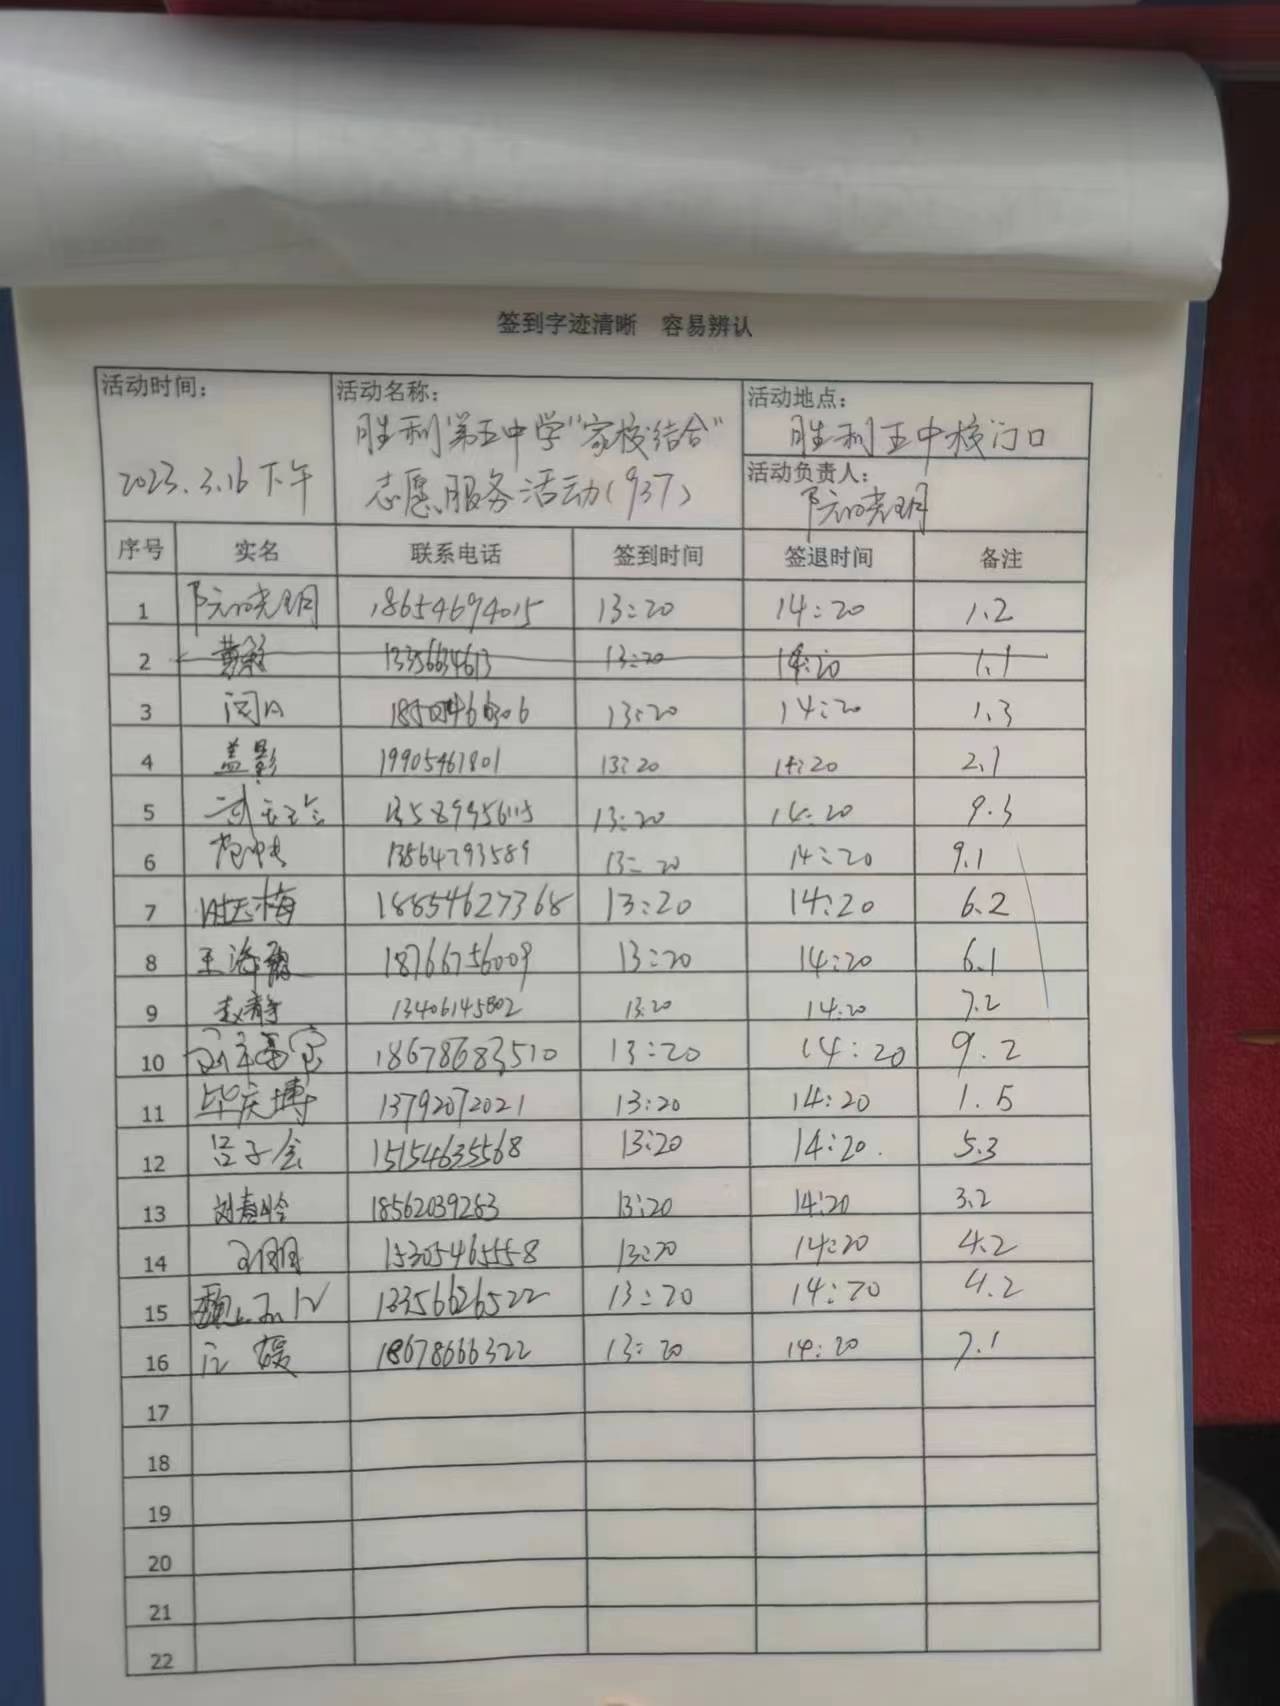 签到字迹清晰 容易辨认
活动时间: 2023.3.16下午
活动名称: 胜利第五中学"家校结合"
志愿服务活动(937)
活动地点: 胜利五中校门口
活动负责人:
序号 实名 联系电话 签到时间 签退时间 备注
1 18654694015 13:20 14:20 1.2
2 13356634613 13:20 14:20 1.1
3 闫 13:20 14:20 1.3
4 盖影 19905461801 13:20 14:20 2.1
5 13:20 14:20 9.3
6 13864793589 13:20 14:20 9.1
7 梅 18854627368 13:20 14:20 6.2
8 王海霞 18766756009 13:20 14:20 6.1
9 赵静 13406145802 13:20 14:20 7.2
10 18678683510 13:20 14:20 9.2
11 毕庆博 13792072021 13:20 14:20 1.5
12 吕子会 15154635568 13:20 14:20 5.3
13 刘春玲 18562039283 13:20 14:20 3.2
14 15305465558 13:20 14:20 4.2
15 13356626522 13:20 14:20 4.2
16 媛 18678666322 13:20 14:20 7.1
17
18
19
20
21
22